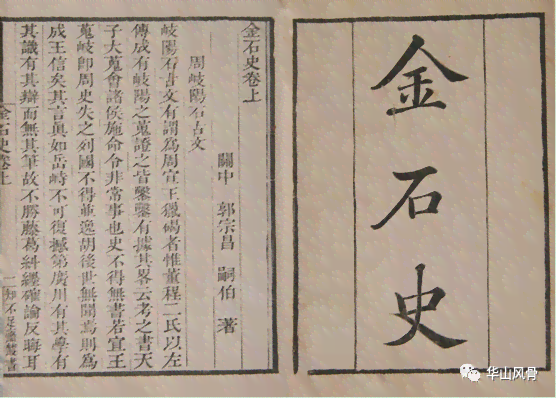 金石史
金石史卷上
周岐陽石古文
關中 郭宗昌 嗣伯 著
岐陽石古文有謂為周宣王獵碣者惟董程二氏以左
傳成有岐陽之蒐證之皆鑿鑿有據其畧云考之書天
子大蒐會諸侯施命令非常事也史不得無書若宣王
蒐岐即周史失之列國不得並逸胡後世無聞焉則為
成王信矣其言眞如岳峙不可復撼第廣川有其學有
其識有其辯而無其筆故不勝藤葛糾纏確論反晦耳
金石史卷上
一 知不足齋叢書
华山风骨